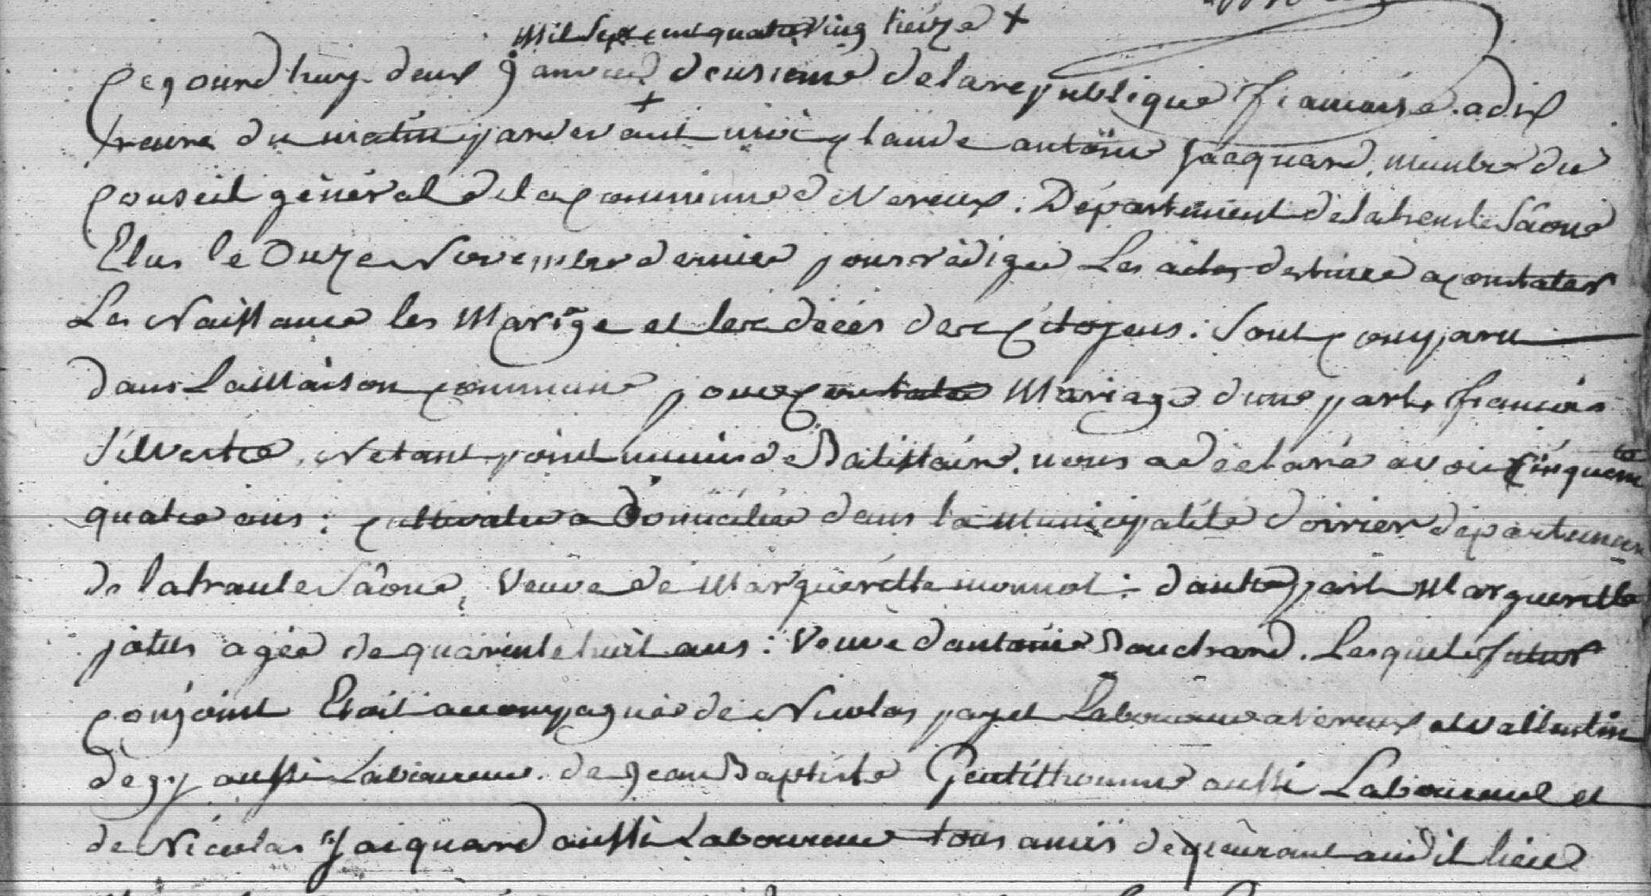 mil sept cent quatre ving treize +
Cejourd huy deux janvier deusieme de la republique francaise. a dix
heure du matin pardevant moi Claude antoine Jacquard, membre du
Conseil général de la Commune de Vereux. Département de la heute Sâone
Elus le Onze Novembre dernier pour rédiger Les actes destinee a Constater
Les Naissance les Mariage et les décés des Citoyens. Sont Comparu
dans La Maison Commune pour Constater Mariage d'une part, francois
Silvestre, N'etant point muni de Batistaire. nous a déclaré avoir Cinquante
quatre ans : Cultivateur a Domicilié dans la municipalité d'oirier département
de la haute Sâone, Veuve de Marguerétte monnot : d'autre part Marguerétte
patus agée de quarente huit ans : Veuve d'antoine Bouchard. Lesquele futur
Conjoint Etoit accompagnée de Nicolas payet Laboureur a Vereux et vallentin
degy aussi Laboureur. de Jean Baptiste Gentilhomme aussi Laboureur et
de Nicolas Jacquard aussi Laboureur tous amis demeurant audit lieu